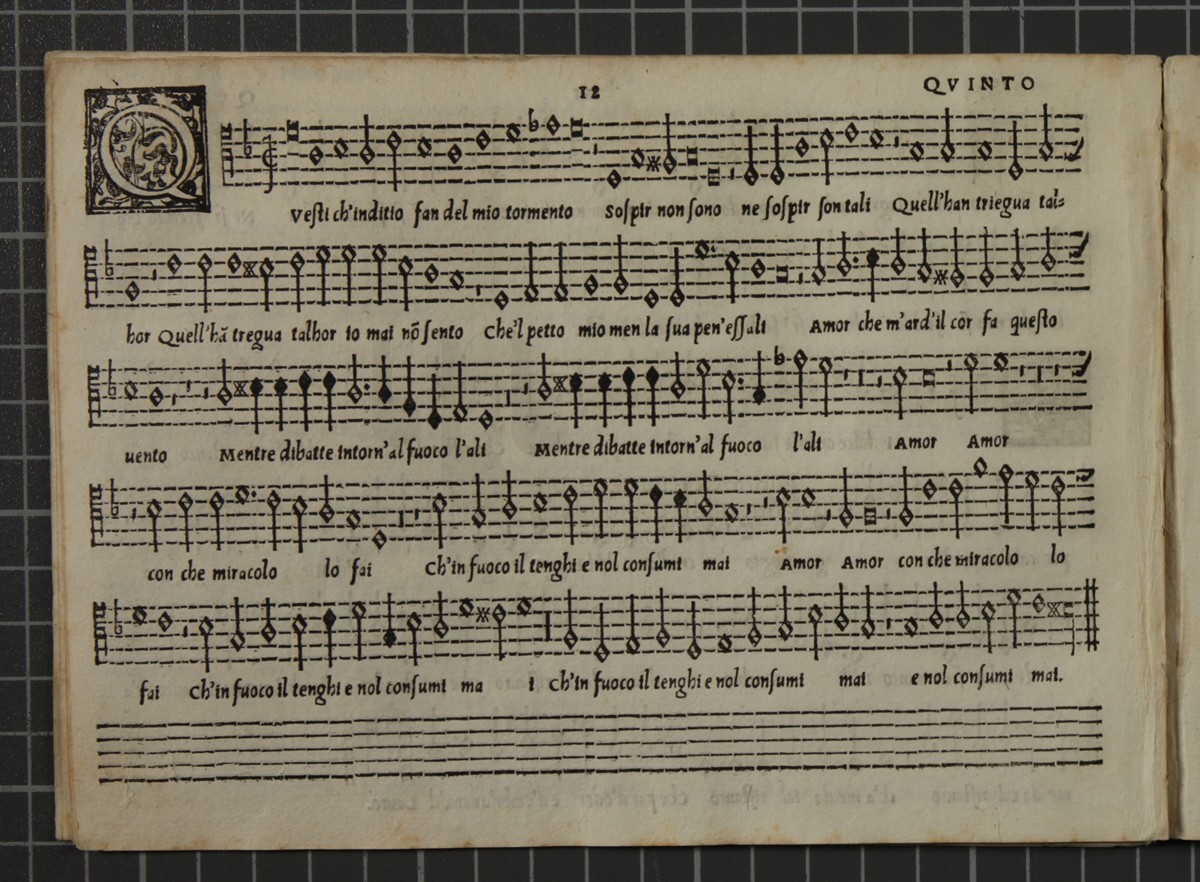 12
QVINTO
QVesti ch'inditio fan del mio tormento Sospir non sono ne sospir son tali Quell'han triegua tal=
hor Quell'hã tregua talhor io mai nõ sento Che'l petto mio men la sua pen'essali Amor che m'ard'il cor fa questo
uento Mentre dibatte intorn'al fuoco l'ali Mentre dibatte intorn'al fuoco l'ali Amor Amor
con che miracolo lo fai Ch'in fuoco il tenghi e nol consumi mai Amor Amor con che miracolo lo
fai Ch'in fuoco il tenghi e nol consumi ma i Ch'in fuoco il tenghi e nol consumi mai e nol consumi mai.